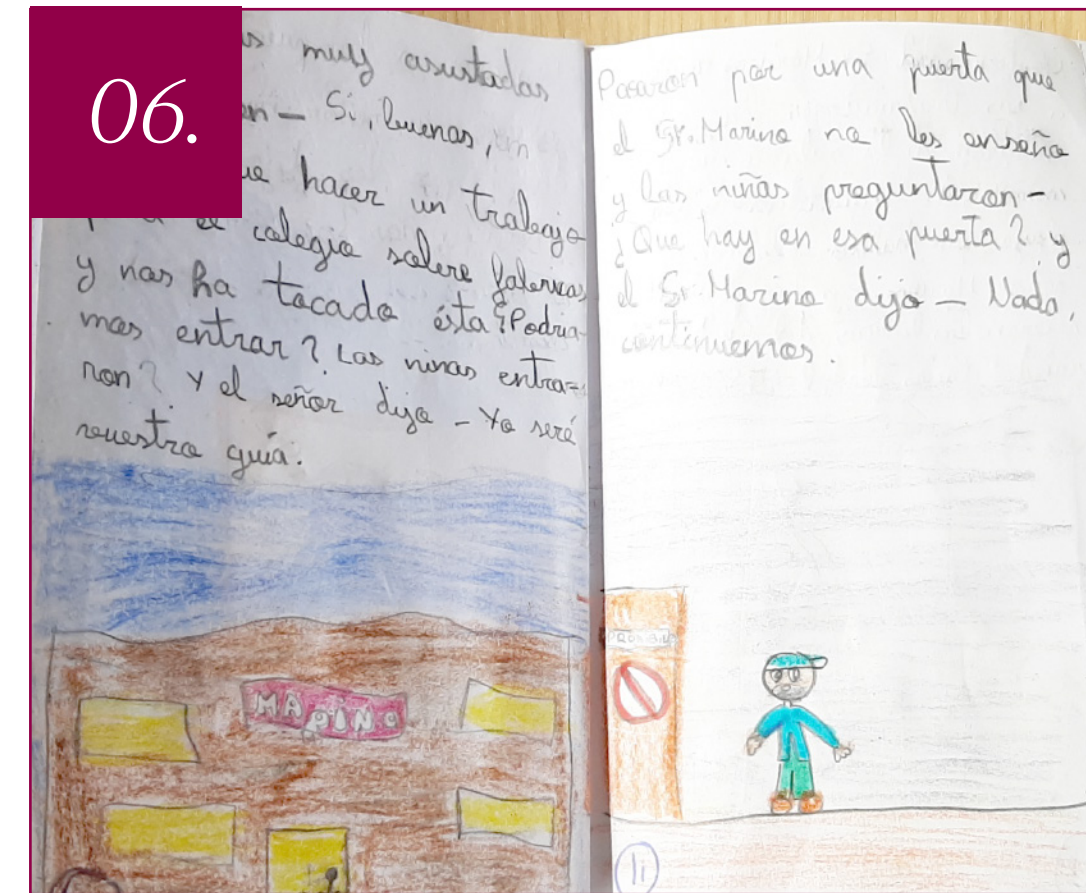 06.
muy asustadas
– Si, buenas,
hacer un trabajo
el colegio sobre fabricas
y nos ha tocado ésta ¿Podria-
mos entrar? Las ninas entra-
ron? Y el señor dijo – Yo seré
vuestro guía.
MARINO
Pasaron por una puerta que
el Sr. Marino no les enseño
y las niñas preguntaron –
¿Que hay en esa puerta? y
el Sr. Marino dijo – Nada,
continuemos.
11